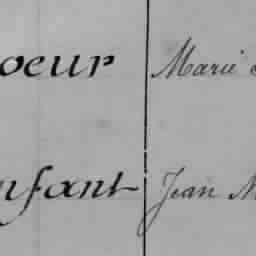 oeur Marie
nfant Jean M